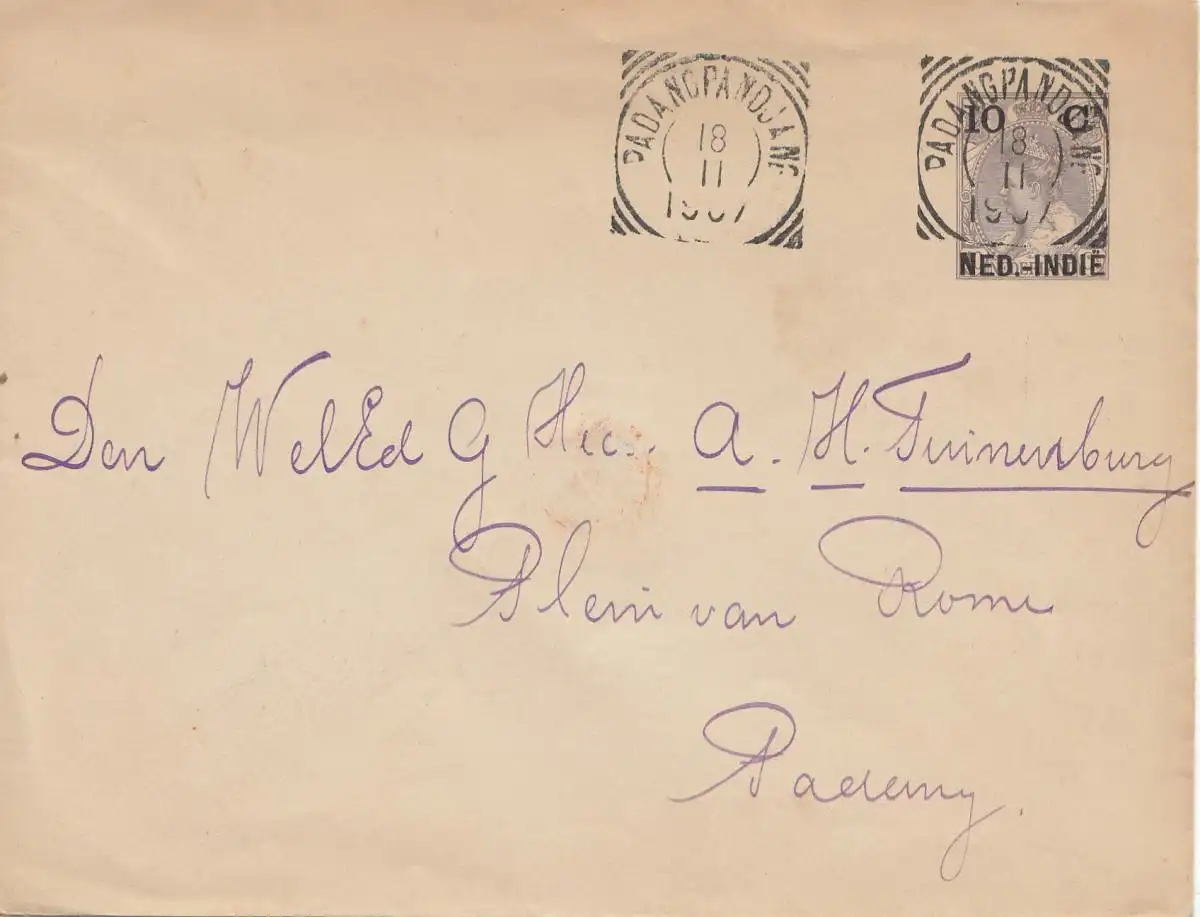 PADANGPANDJANG
18
11
1907
PADANGPANDJANG
18
11
1907
10 C
NED.-INDIË
Den WelEd G Heer A. H. Tuinenburg
Plein van Rome
Padang.